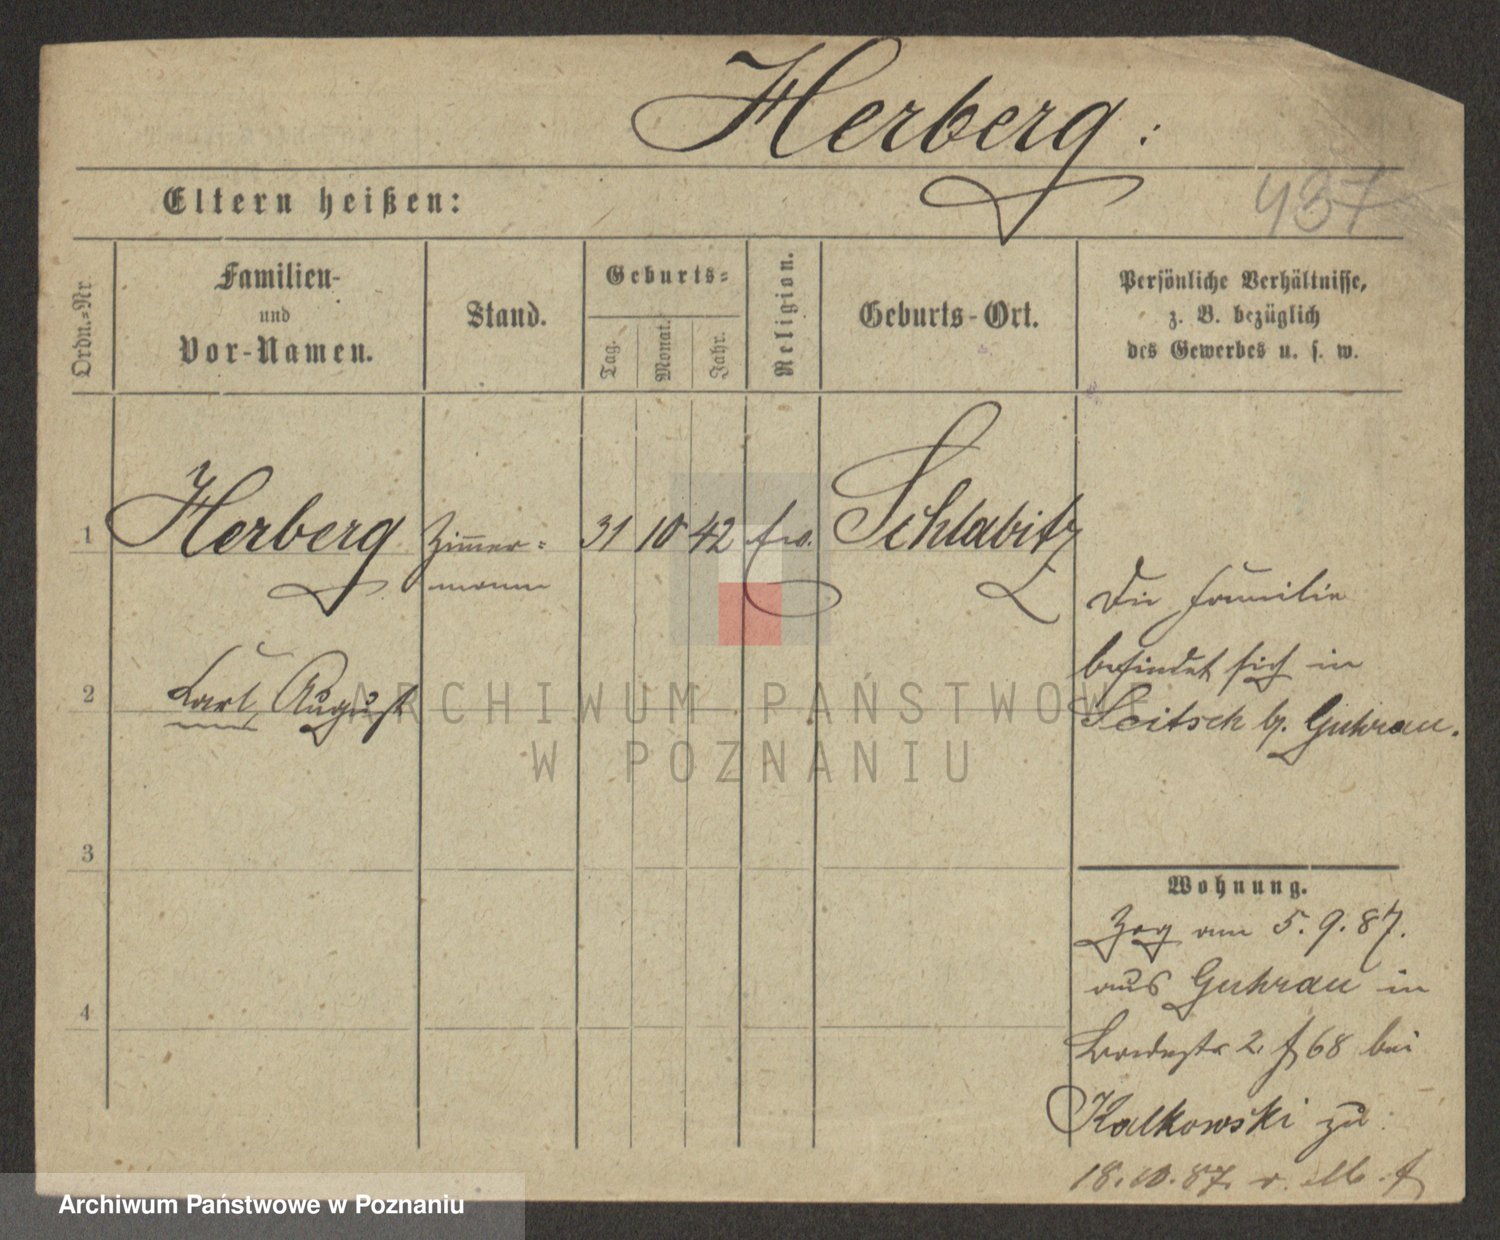 Herberg:
437
Eltern heißen:
Ordn.=Nr
Familien-
und
Vor-Namen.
Stand.
Geburts=
Tag.
Monat.
Jahr.
Religion.
Geburts-Ort.
Persönliche Verhältnisse,
z. B. bezüglich
des Gewerbes u. s. w.
1 Herberg Zimmer= 31 10 42 ev. Schlabitz
mann
Die Familie
befindet sich in
2 Carl August
Seitsch b. Guhrau.
ARCHIWUM PAŃSTWOWE
W POZNANIU
3
Wohnung.
Zog am 5.9.87.
aus Guhrau in
4
2. 68 bei
Kalkowski zu
18.10.87.
Archiwum Państwowe w Poznaniu